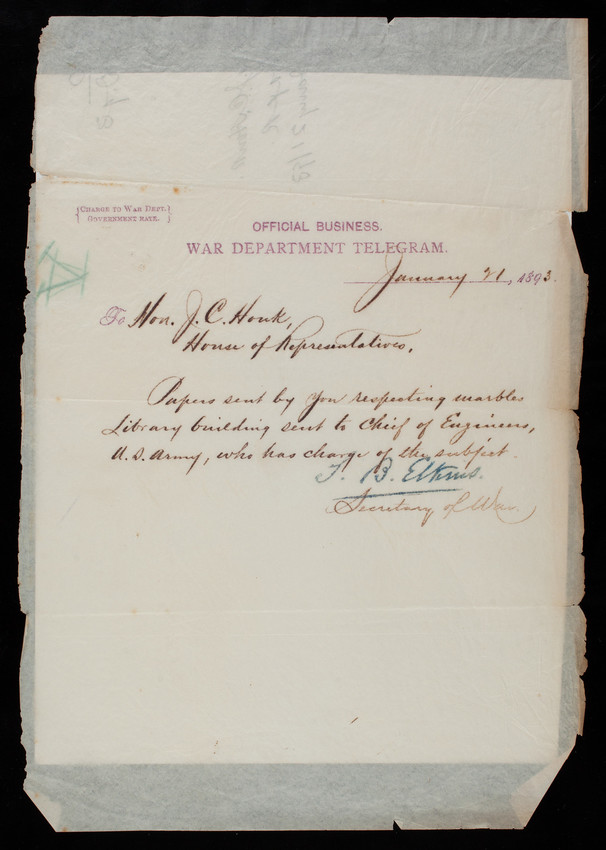 {CHARGE TO WAR DEPT.}
{GOVERNMENT RATE.}
OFFICIAL BUSINESS.
WAR DEPARTMENT TELEGRAM.
January 21, 1893.
To Hon. J. C. Houk,
House of Representatives,
Papers sent by you respecting marbles
Library building sent to Chief of Engineers,
U.S. Army, who has charge of the subject.
B. Elkins.
Secretary of War.